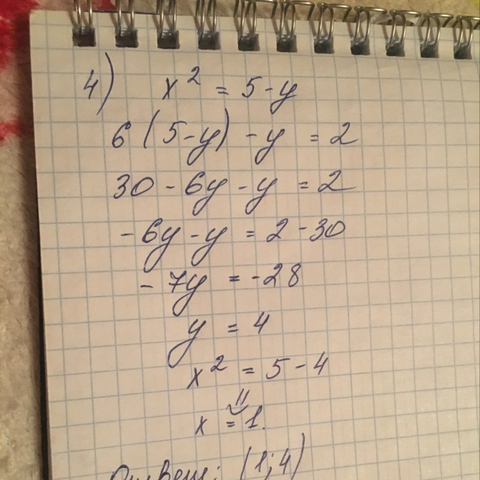 4) x² = 5 - y
6(5-y) - y = 2
30 - 6y - y = 2
-6y - y = 2 - 30
-7y = -28
y = 4
x² = 5 - 4
x = 1
Ответ: (1; 4)